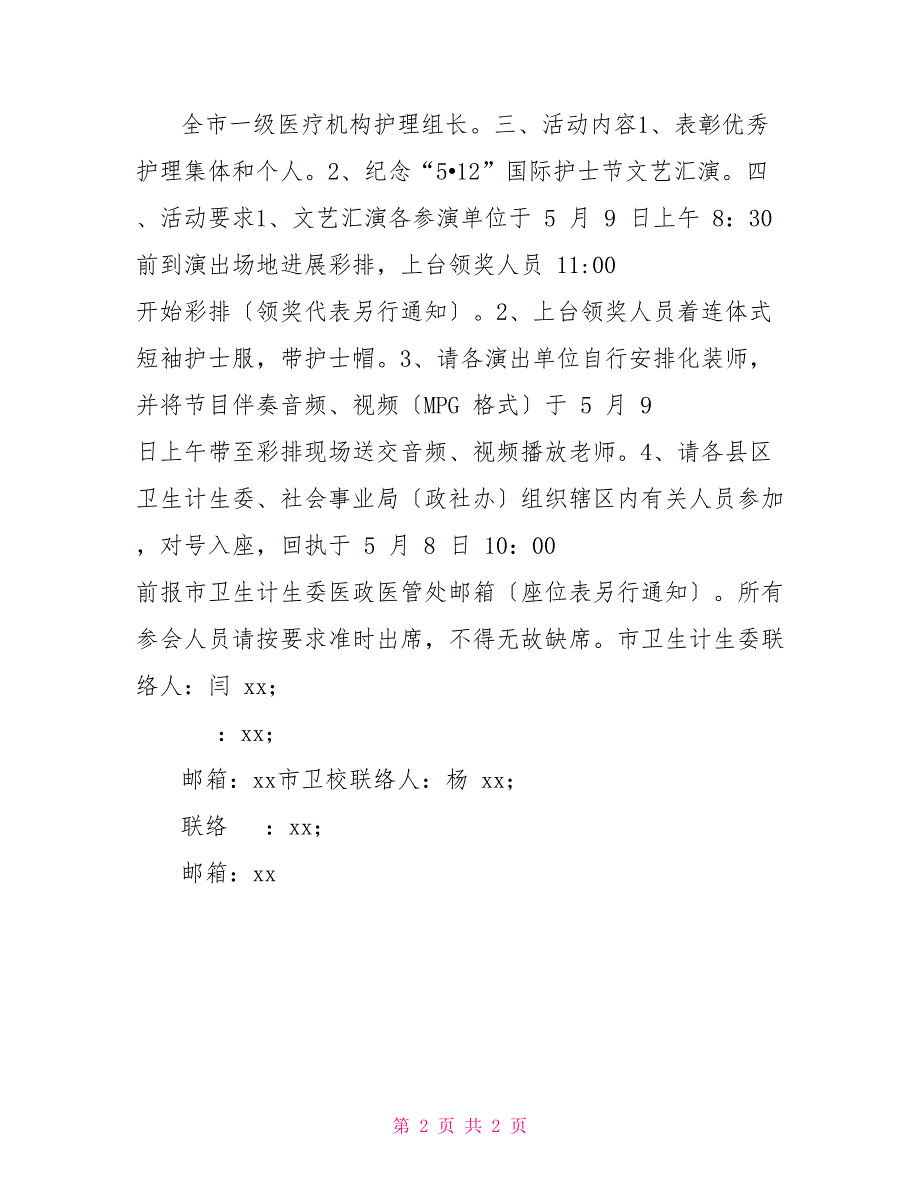 全市一级医疗机构护理组长。三、活动内容1、表彰优秀
护理集体和个人。2、纪念“5•12”国际护士节文艺汇演。四
、活动要求1、文艺汇演各参演单位于 5 月 9 日上午 8：30
前到演出场地进展彩排，上台领奖人员 11:00
开始彩排〔领奖代表另行通知〕。2、上台领奖人员着连体式
短袖护士服，带护士帽。3、请各演出单位自行安排化装师，
并将节目伴奏音频、视频〔MPG 格式〕于 5 月 9
日上午带至彩排现场送交音频、视频播放老师。4、请各县区
卫生计生委、社会事业局〔政社办〕组织辖区内有关人员参加
，对号入座，回执于 5 月 8 日 10：00
前报市卫生计生委医政医管处邮箱〔座位表另行通知〕。所有
参会人员请按要求准时出席，不得无故缺席。市卫生计生委联
络人：闫 xx；
：xx；
邮箱：xx市卫校联络人：杨 xx；
联络 ：xx；
邮箱：xx
第 2 页 共 2 页